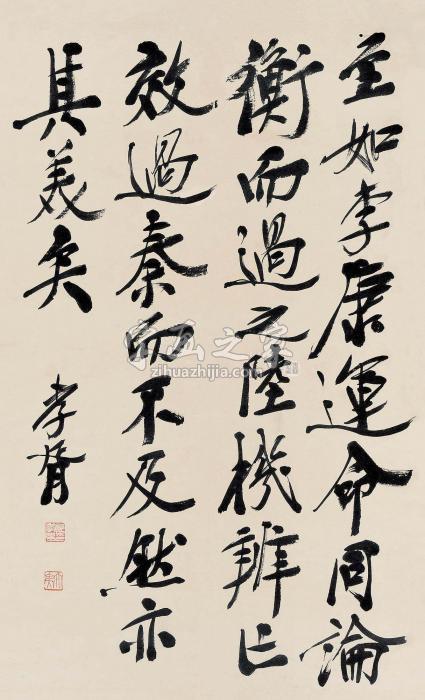 至如李康運命同論
衡而過之陸機辨亡
效過秦而不及然亦
其美矣
孝胥
字画之家
zihuazhijia.com